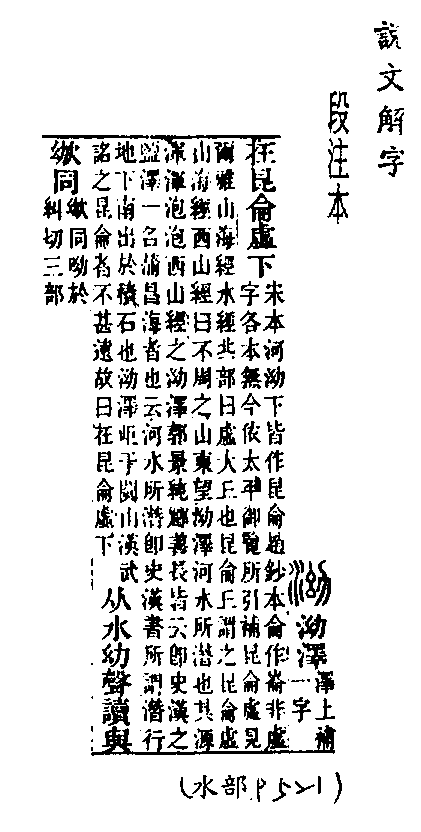 說文解字
段注本
泑 泑澤 澤上補
一字
在昆侖虛下 宋本河泑下皆作昆侖趙鈔本侖作崙非虛
字各本無今依太平御覽所引補昆侖虛見
爾雅山海經水經北部曰虛大丘也昆侖丘謂之昆侖虛
山海經西山經曰不周之山東望泑澤河水所潛也其源
渾渾泡泡西山經之泑澤郭景純酈善長皆云卽史漢之
鹽澤一名蒲昌海者也云河水所潛卽史漢書所謂潛行
地下南出於積石也泑澤岠于闐山漢武
詺之昆侖者不甚遠故曰在昆侖虛下
从水幼聲讀與
㛂同
㛂同呦於
糾切三部
(水部 P 521)